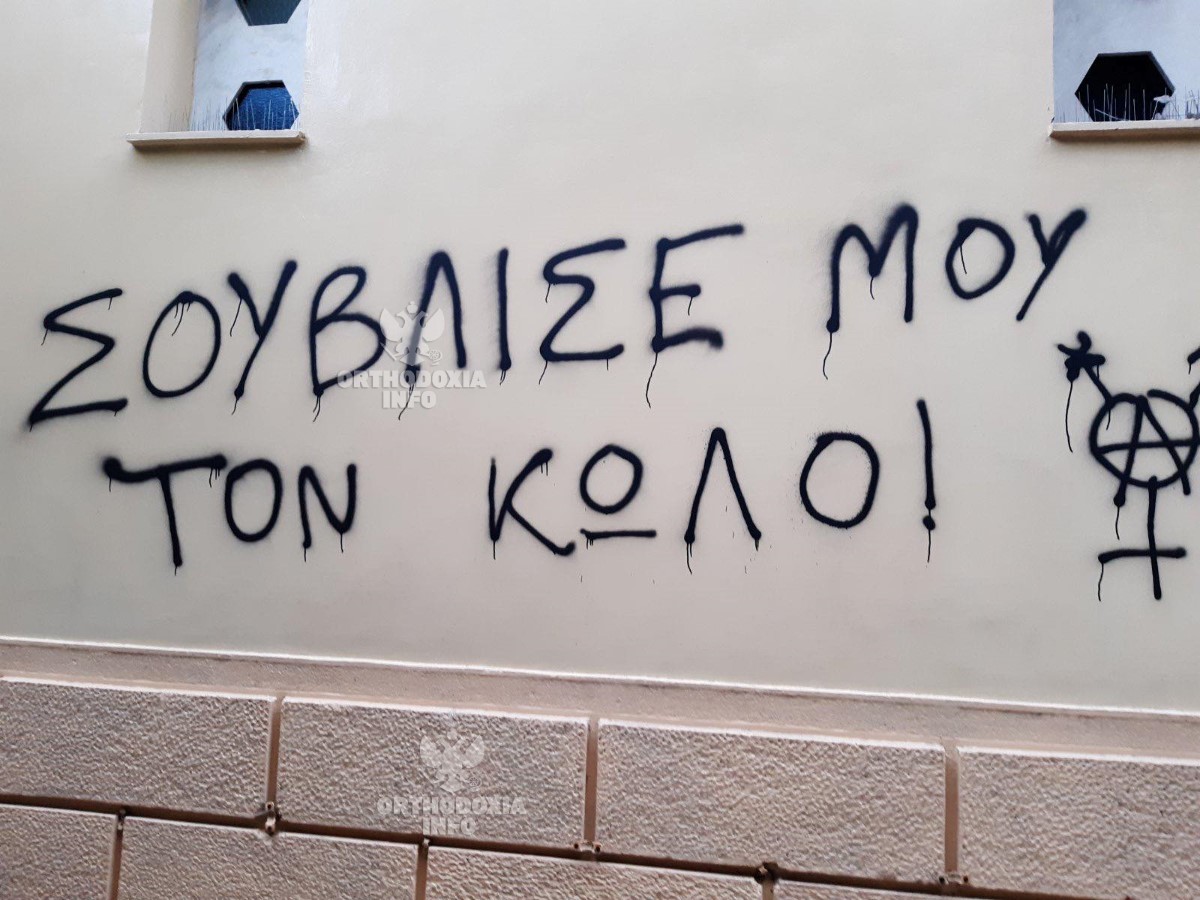 ΣΟΥΒΛΙΣΕ ΜΟΥ
ΤΟΝ ΚΩΛΟ!
ORTHODOXIA
INFO
ORTHODOXIA
INFO